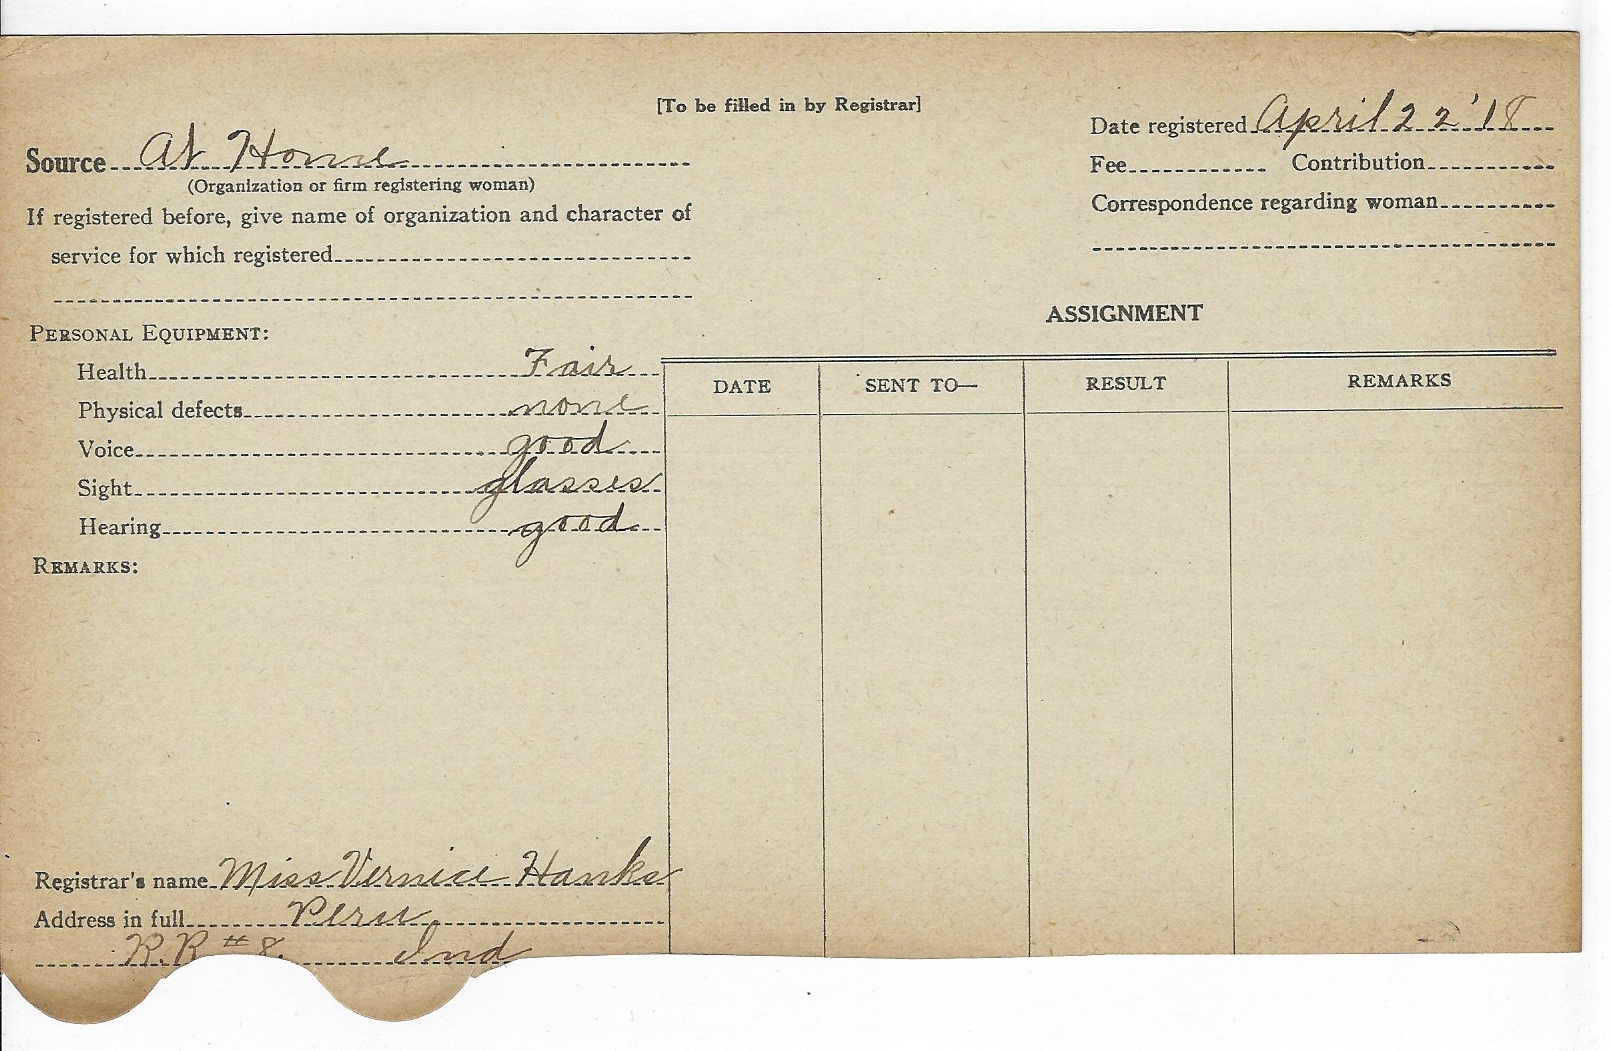 [To be filled in by Registrar]
Date registered April 22 '18
Source At Home
(Organization or firm registering woman)
Fee Contribution
If registered before, give name of organization and character of
Correspondence regarding woman
service for which registered
ASSIGNMENT
PERSONAL EQUIPMENT:
Health Fair
Physical defects none
Voice good
Sight glasses
Hearing good
DATE SENT TO— RESULT REMARKS
REMARKS:
Registrar's name Miss Vernice Hanks
Address in full Peru
R.R #8. Ind